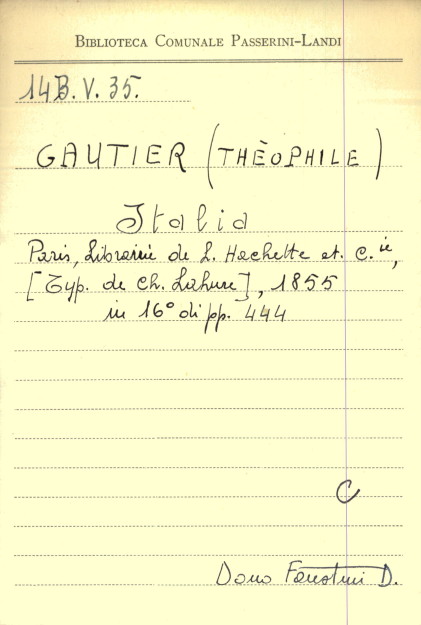 BIBLIOTECA COMUNALE PASSERINI-LANDI
14B.V.35.
GAUTIER (THÈOPHILE)
Italia
Paris, Librairie de L. Hachette et. C.ie,
[Typ. de Ch. Lahure], 1855
in 16° di pp. 444
C
Dono Faustini D.